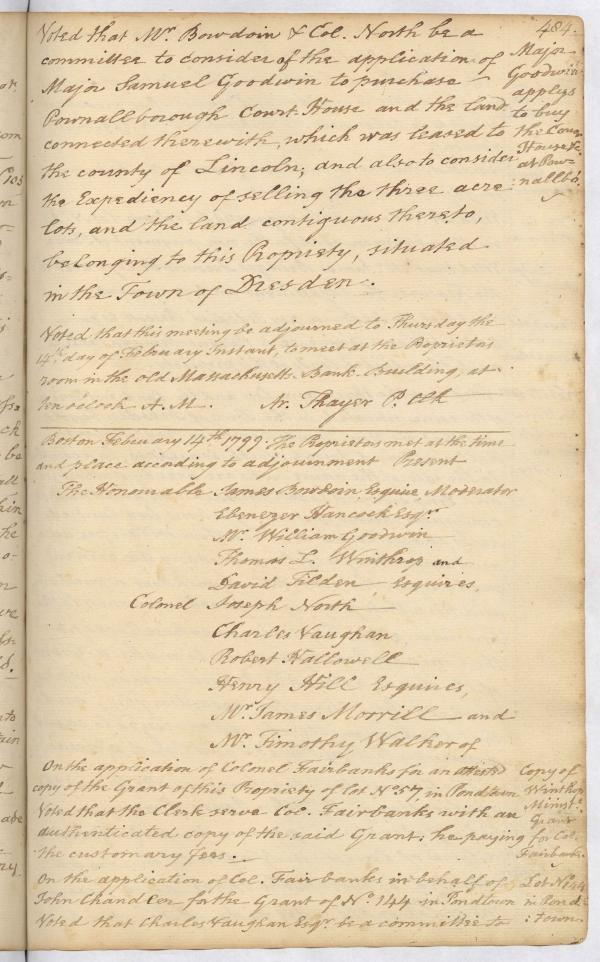 484.
Voted that Mr. Bowdoin & Col. North be a
committee to consider of the application of
Major Samuel Goodwin to purchase
Pownallborough Court House and the land
connected therewith, which was leased to
the county of Lincoln; and also to consider
the Expediency of selling the three acre
lots, and the land contiguous thereto,
belonging to this Propriety, situated
in the Town of Dresden.
Major
Goodwin
applys
to buy
the Court
House &c
at Pow-
:nallbo.
Voted that this meeting be adjourned to Thursday the
14th day of February Instant, to meet at the Proprietors
room in the old Massachusetts Bank Building, at
ten oclock A.M. N. Thayer P. Clk
Boston February 14th 1799. The Proprietors met at the time
and place according to adjournment Present
The Honourable James Bowdoin Esquire, Moderator
Ebenezer Hancock Esqr
Mr. William Goodwin
Thomas L. Winthrop and
David Tilden Esquires,
Colonel Joseph North
Charles Vaughan
Robert Hallowell
Henry Hill Esquires,
Mr. James Morrill and
Mr. Timothy Walker of
On the application of Colonel Fairbanks for an attested
copy of the Grant of this Propriety of Lot No. 57, in Pondtown
Voted that the Clerk serve Col. Fairbanks with an
authenticated copy of the said Grant: he paying
the customary fees.
Copy of
Winthrop
Minist.
Grant
for Col.
Fairbanks
On the application of Col. Fairbanks in behalf of
John Chandler for the Grant of No. 144 in Pondtown
Voted that Charles Vaughan Esqr. be a committee to
Lot No. 144
in Pond
:town